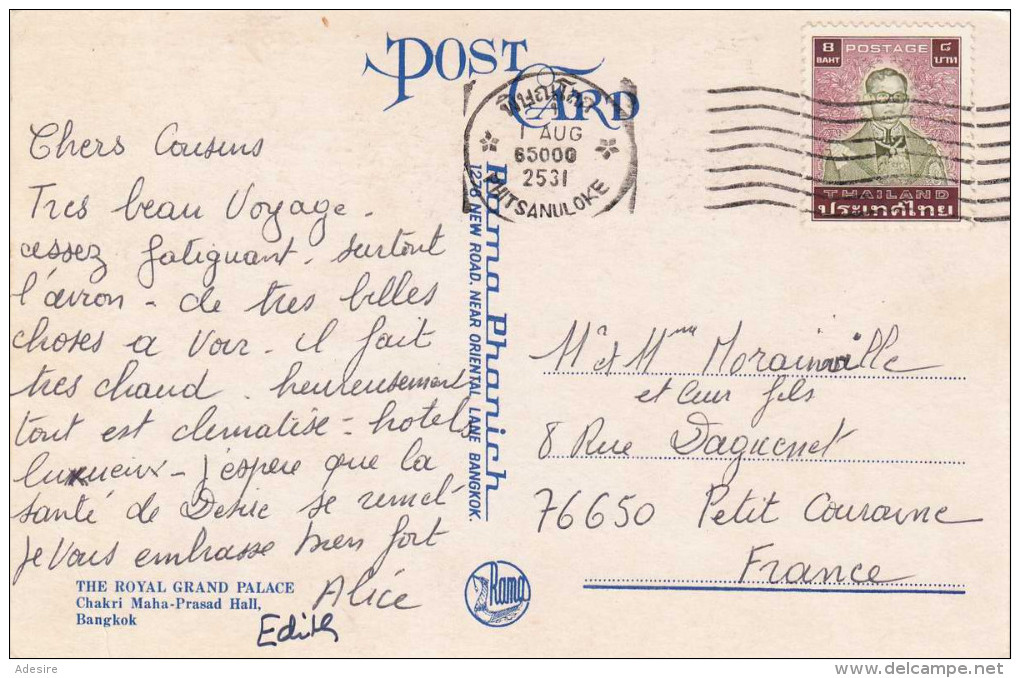 POST CARD
พิษณุโลก
1 AUG
65000
2531
PHITSANULOKE
8 POSTAGE ๘
BAHT บาท
THAILAND
ประเทศไทย
Chers Cousins
Tres beau Voyage.
assez fatiguant. surtout
l'avion - de tres belles
choses a voir. il fait
tres chaud. heureusement
tout est climatisé - hotels
luxueux - j'espere que la
santé de Desire se remet
je vous embrasse bien fort
Alice
Edith
THE ROYAL GRAND PALACE
Chakri Maha-Prasad Hall,
Bangkok
Rama Phanich
NEW ROAD. NEAR ORIENTAL LANE BANGKOK.
Rama
Mr et Mme Morainville
et leur fils
8 Rue Daguesnet
76650 Petit Couronne
France
Adesire
www.delcampe.net